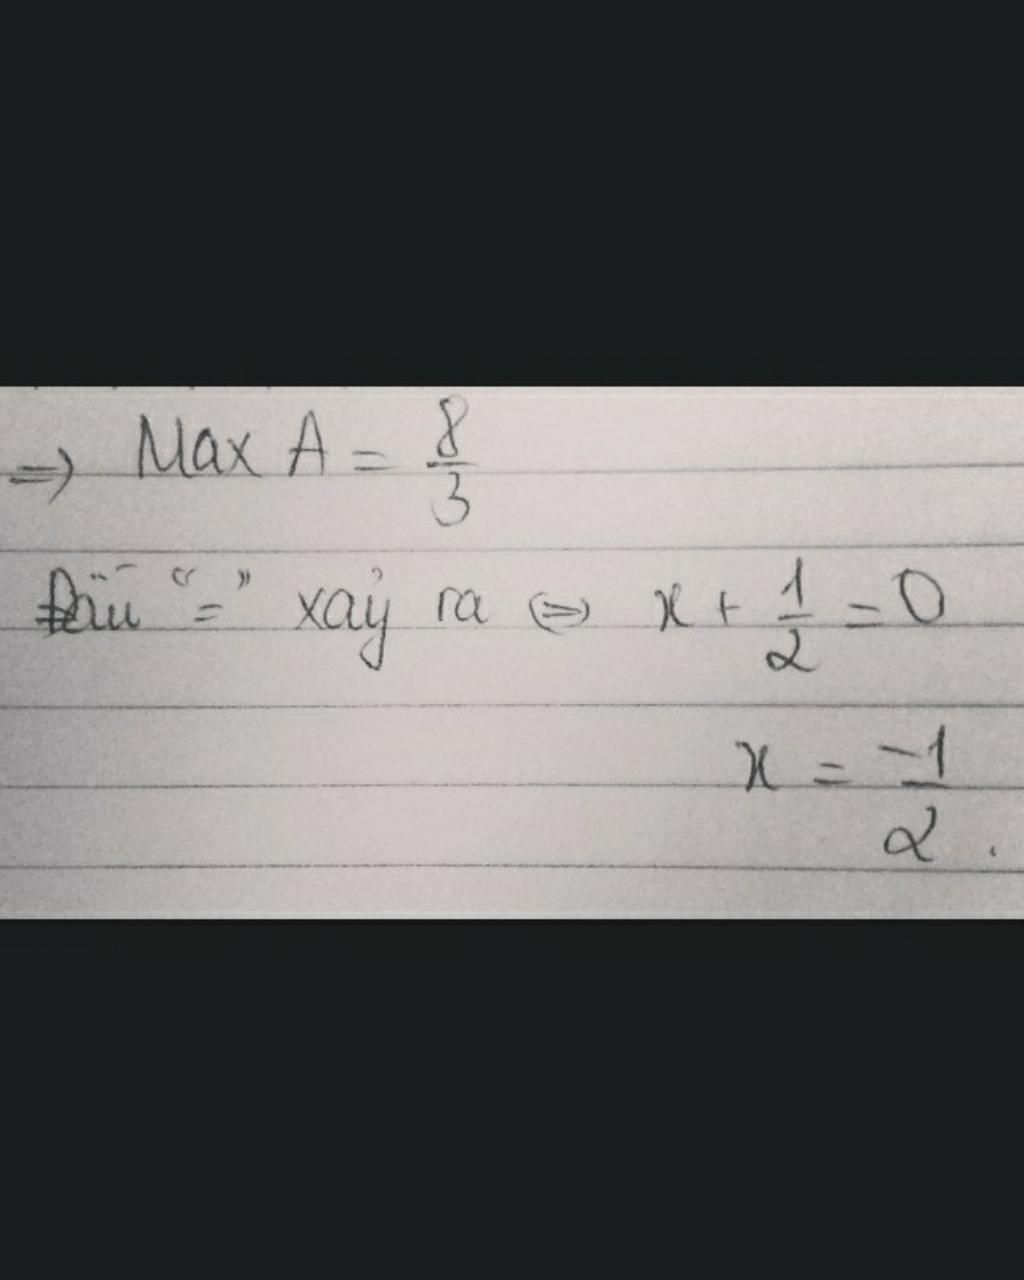 => Max A = 8/3
Dấu "=" xảy ra <=> x + 1/2 = 0
x = -1/2.